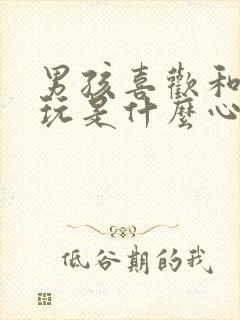 男孩喜歡和
玩是什麼心
低谷期的我